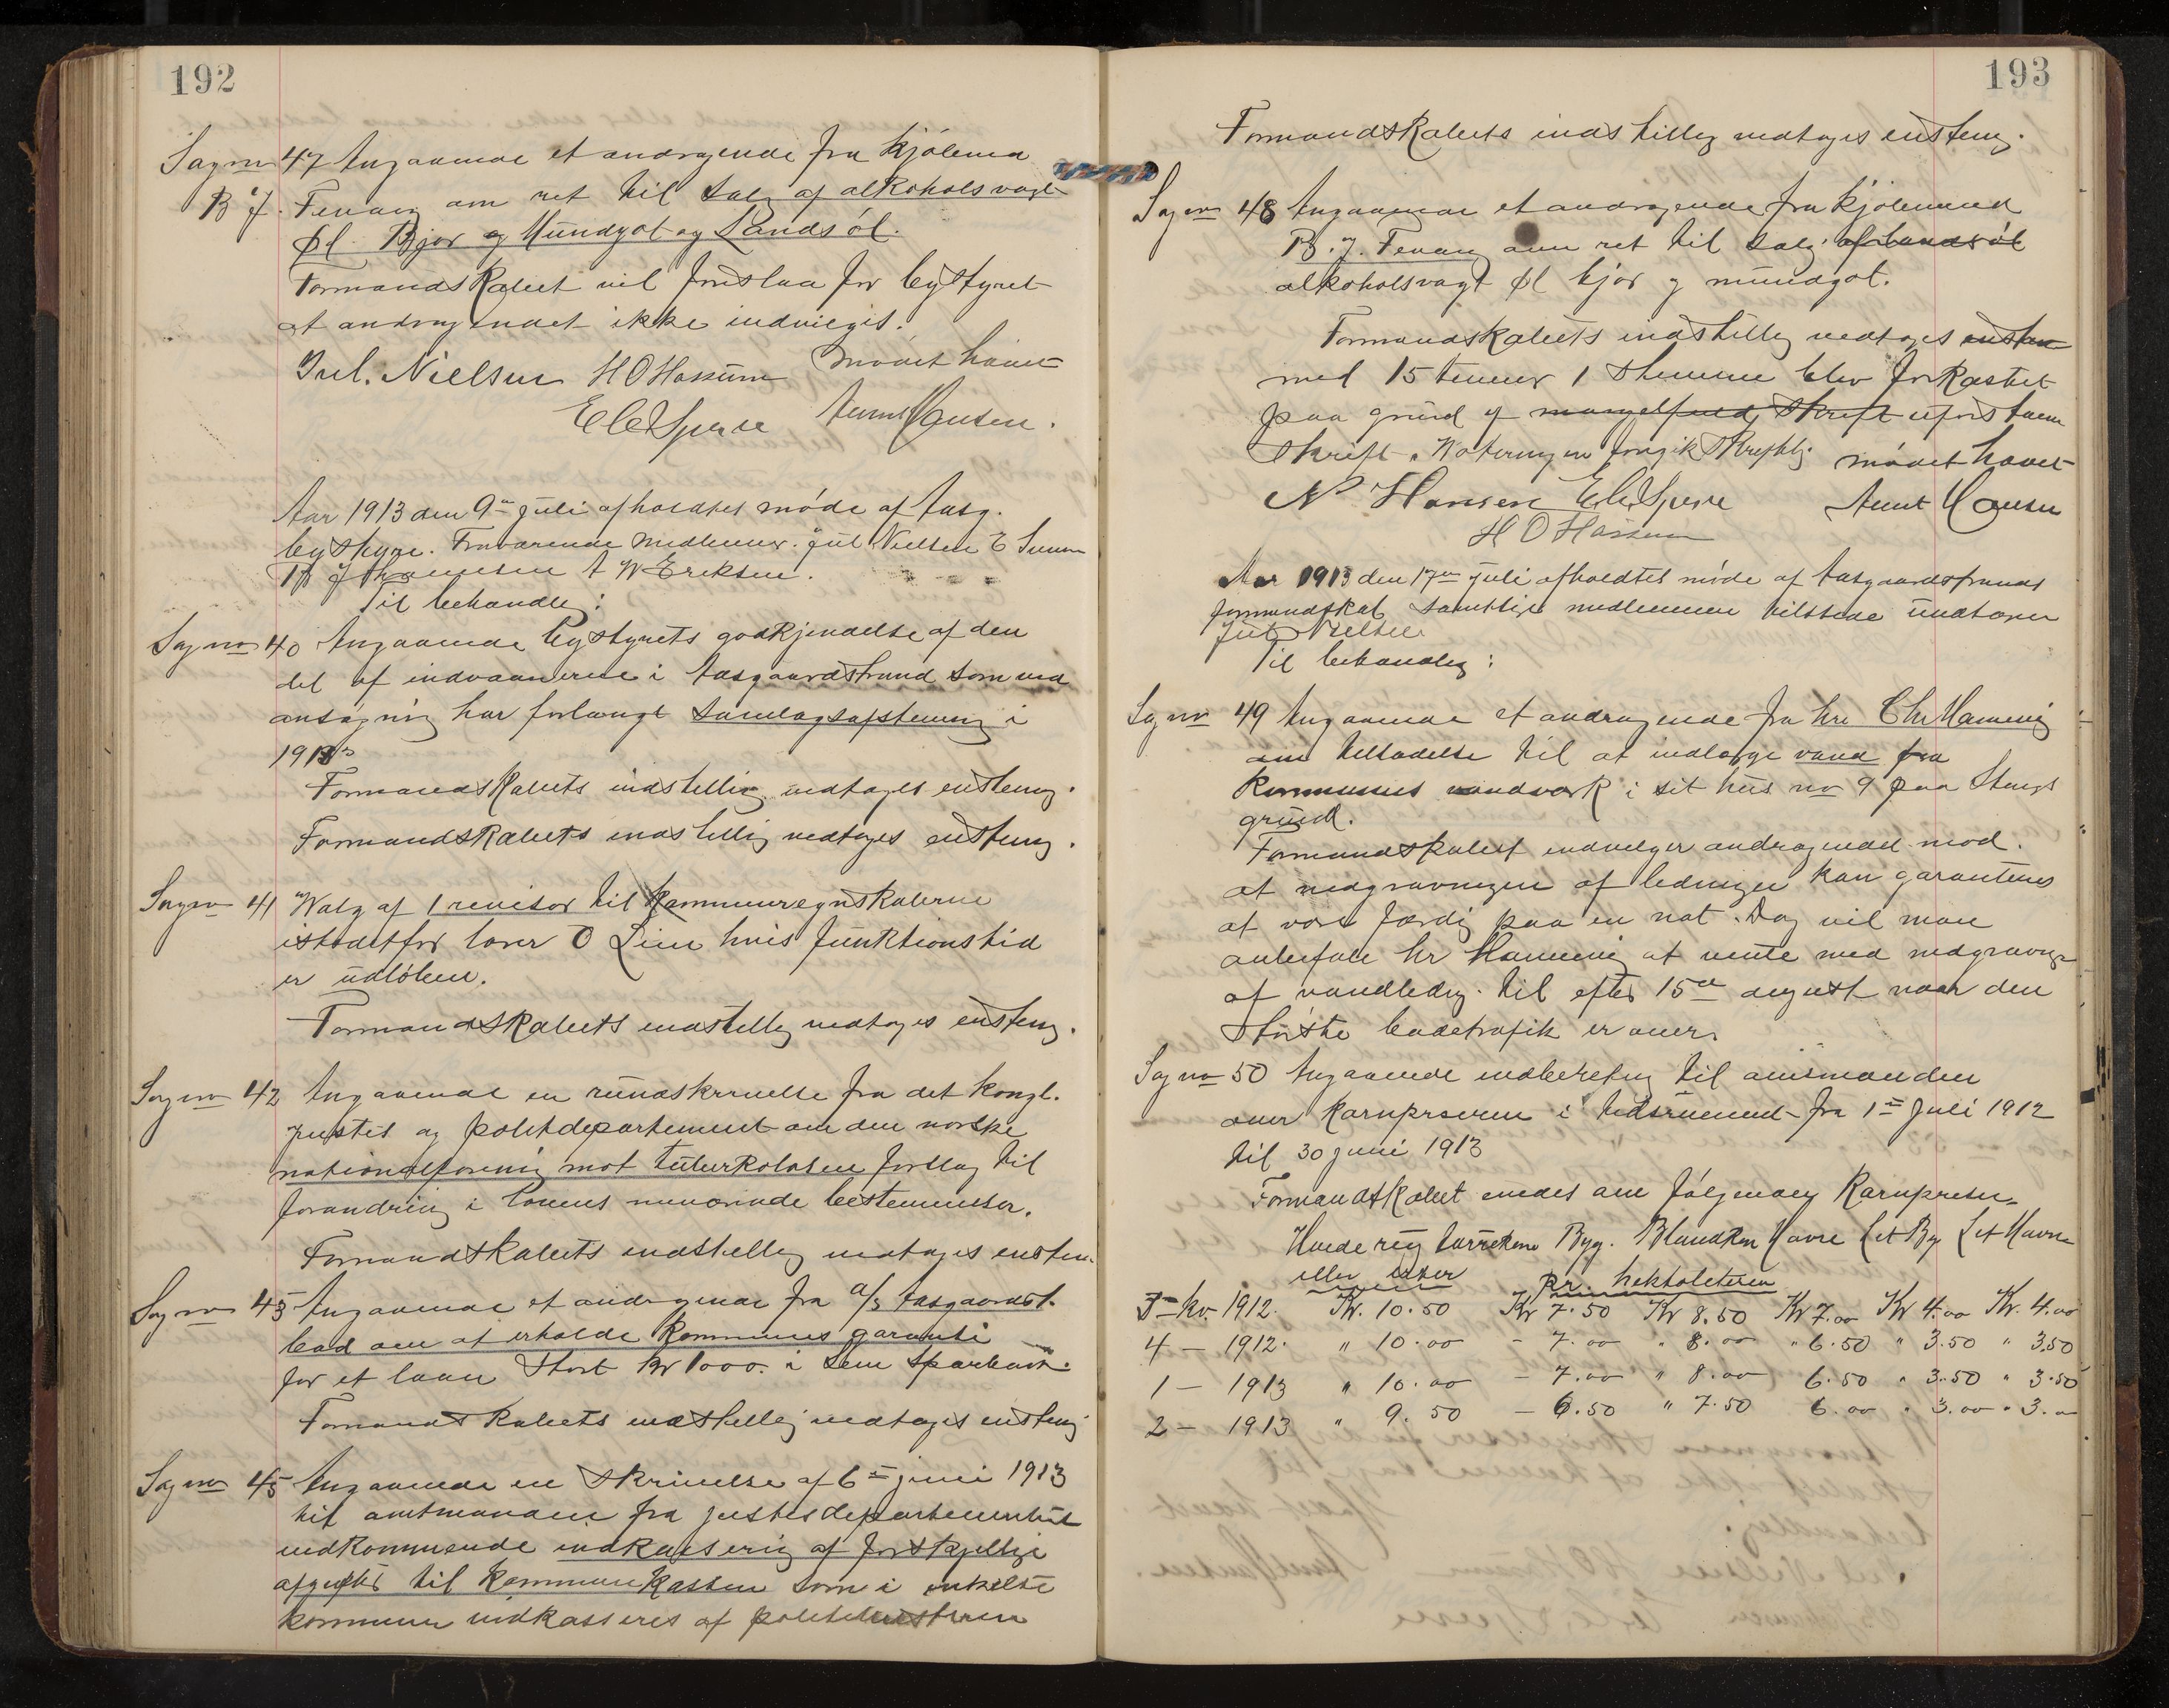 192
Sag no 47 Angaaende et andragende fra kjöbmd
B J. Fevang om ret til salg af alkoholsvagt
Øl Bjor og Mundgot og Landsöl.
Formandskabet vil foreslaa for bystyret
at andragendet ikke indvilges.
Jul. Nielsen H O Hassum mödet hævet
E C Sperre Aunt Hansen.
Aar 1913 den 9de juli afholdtes möde af Aasg.
bystyre. Fraværende medlemmer. Jul Nielsen E
A W Eriksen.
Til behandlig:
Sag no 40 Angaaende bystyrets godkjendelse af den
del af indvaanerne i Aasgaardstrand som ved
ansögning har forlangt samlagsafstemnig i
1913
Formandskabets indstillig vedtages enstemg.
Formandskabets indstillig vedtages enstemg.
Sag no 41 Valg af 1 revisor til kommuneregnskaberne
istedetfor lærer O Lien hvis funktionstid
er udlöben.
Formandskabets indstillig vedtages enstemg.
Sag no 42 Angaaende en rundskrivelse fra det kongl.
justis og politidepartement om den norske
nationalforenig mot tuberkolosen forslag til
forandring i lovens nuværende bestemmelser.
Formandskabets indstillig vedtages enstem.
Sag no 43 Angaaende et andragende fra a/s Aasgaardst.
bad om at erholde kommunes garanti
for et laan stort Kr 1000. i Sem Sparebank.
Formandskabets indstillig vedtages enstemg
Sag no 45 Angaaende en skrivelse af 6te juni 1913
til amtmanden fra justisdepartementet
vedkommende indkassering af forskjellige
afgifter til kommunekassen som i enkelte
kommuner indkasseres af politimesteren
193
Formandskabets indstillig vedtages enstemg.
Sag no 48 Angaaende et andragende fra kjöbmand
B. J. Fevang om ret til salg af landsöl
alkoholsvagt øl bjor og mundgot.
Formandskabets indstillig vedtages enstem
med 15 stemmer 1 stemme blev forkastet
paa grund af mangelfuld skrift
skrift. Voteringen foregik skriftlig. mödet hævet
N Hansen E C Sperre Aunt Hansen
H O Hassum
Aar 1913 den 17de juli afholdtes möde af Aasgaardstrands
formandskab samtlige medlemmer tilstede undtagen
Jul Nielsen
Til behandlig:
Sag no 49 Angaaende et andragende fra hr. Chr Hannevig
om tilladelse til at indlægge vand fra
kommunes vandværk i sit hus no 9 paa Stangs
grund.
Formandskabet indvilger andragendet mod.
at nedgravningen af ledningen kan garanteres
at være færdig paa en nat. Dog vil man
anbefale hr Hannevig at vente med nedgravng
af vandledng. til efter 15de august naar den
störste badetrafik er over.
Sag no 50 Angaaende indberetng til amtmanden
over kornpriserne i tidsrummet fra 1ste Juli 1912
til 30 juni 1913
Formandskabet enedes om fölgende kornpriser
Hvede rug Byg. Blandkorn Havre Let Byg Let Havre
eller erter pr. hektoliteren
3die kv. 1912. Kr. 10.50 Kr 7.50 Kr 8.50 Kr 7.00 Kr 4.00 Kr. 4.00
4 — 1912. " 10.00 - 7.00 " 8.00 " 6.50 " 3.50 " 3.50
1 — 1913 " 10.00 - 7.00 " 8.00 6.50 " 3.50 " 3.50
2 — 1913 " 9.50 — 6.50 " 7.50 6.00 " 3.00 " 3.00